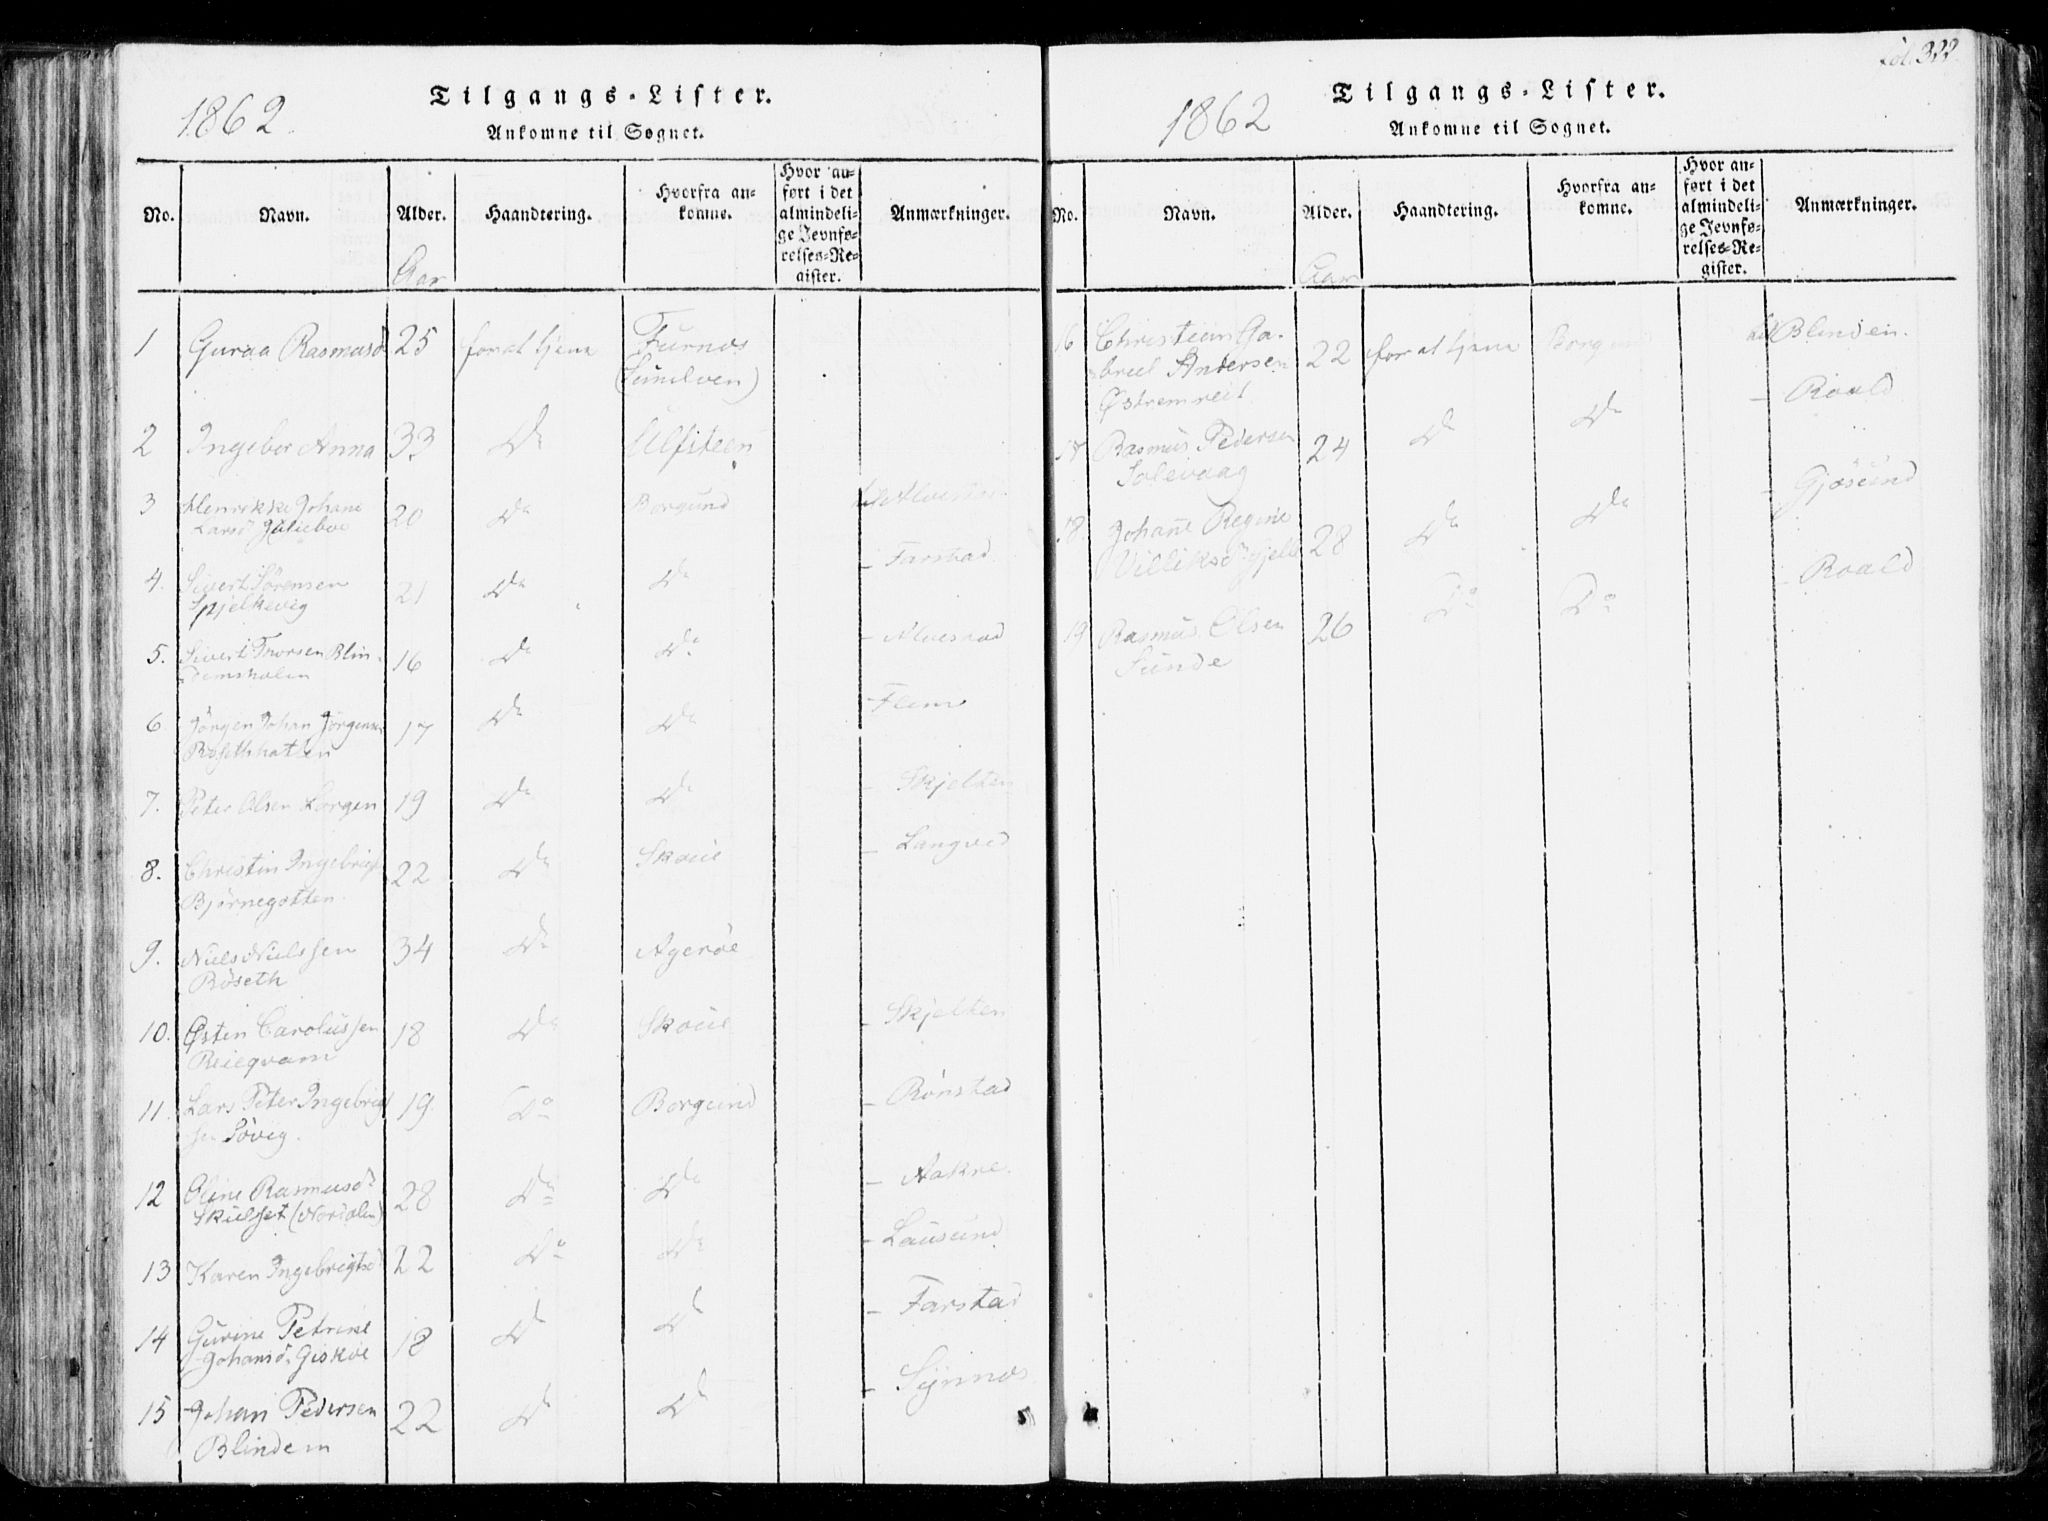 1862
Tilgangs-Lister.
Ankomne til Sognet.
No.
Navn.
Alder.
Haandtering.
Hvorfra an-
komne.
Hvor an-
ført i det
almindeli-
ge Jevnfø-
relses-Re-
gister.
Anmærkninger.
Aar
1 Guraa Rasmusd 25 for at tjene Furnes
(Sundven)
2 Ingebor Anna 33 Do
3 Henrikke Johane 20 Do Borgund
Larsd
4. Sivert Sørensen 21 Do Do – Farstad
Spjelkevig
5. Sivert Thorsen Blin- 16 Do Do
demsholen
6 Jörgen Johan Jörgensen 17 Do Do – Flem
7. Peter Olsen Lorgen 19 Do Do – Skjelten
8. Christin Ingebrigts 22 Do Skoue – Langved
Bjørnegotten
9. Niels Nielssen 34 Do Agerøe
Röseth
10. Østen Carolussen 18 Do Skoue – Skjelten
11. Lars Peter Ingebrigt 19 Do Borgund – Rönstad
sen Søvig.
12 Oline Rasmusd 28 Do Do – Aakre.
(Nordalen)
13 Karen Ingebrigtsd 22 Do Do – Lausund
14 Gurine Petrine 18 Do Do – Farstad
Johansd. Giskøe
15 Johan Pedersen 22 Do Do – Synnes
Blindem
fol. 322
1862
Tilgangs-Lister.
Ankomne til Sognet.
No.
Navn.
Alder.
Haandtering.
Hvorfra an-
komne.
Hvor an-
ført i det
almindeli-
ge Jevnfø-
relses-Re-
gister.
Anmærkninger.
Aar
16 Christian Ga- 22 for at tjene Borgund til Blinden.
briel Andersen
Østremreit
17 Rasmus Pedersen 24 Do Do – Roald
Solevaag
18. Johane Regine 28 Do Do – Gjøsund
19 Rasmus Olsen 26 Do Do – Roald
Sunde